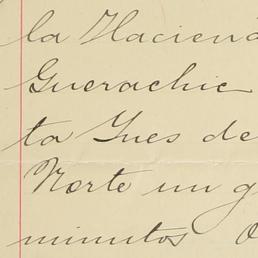 la Haciend
Guerachic
ta Ynes de
Norte un g
minutos O